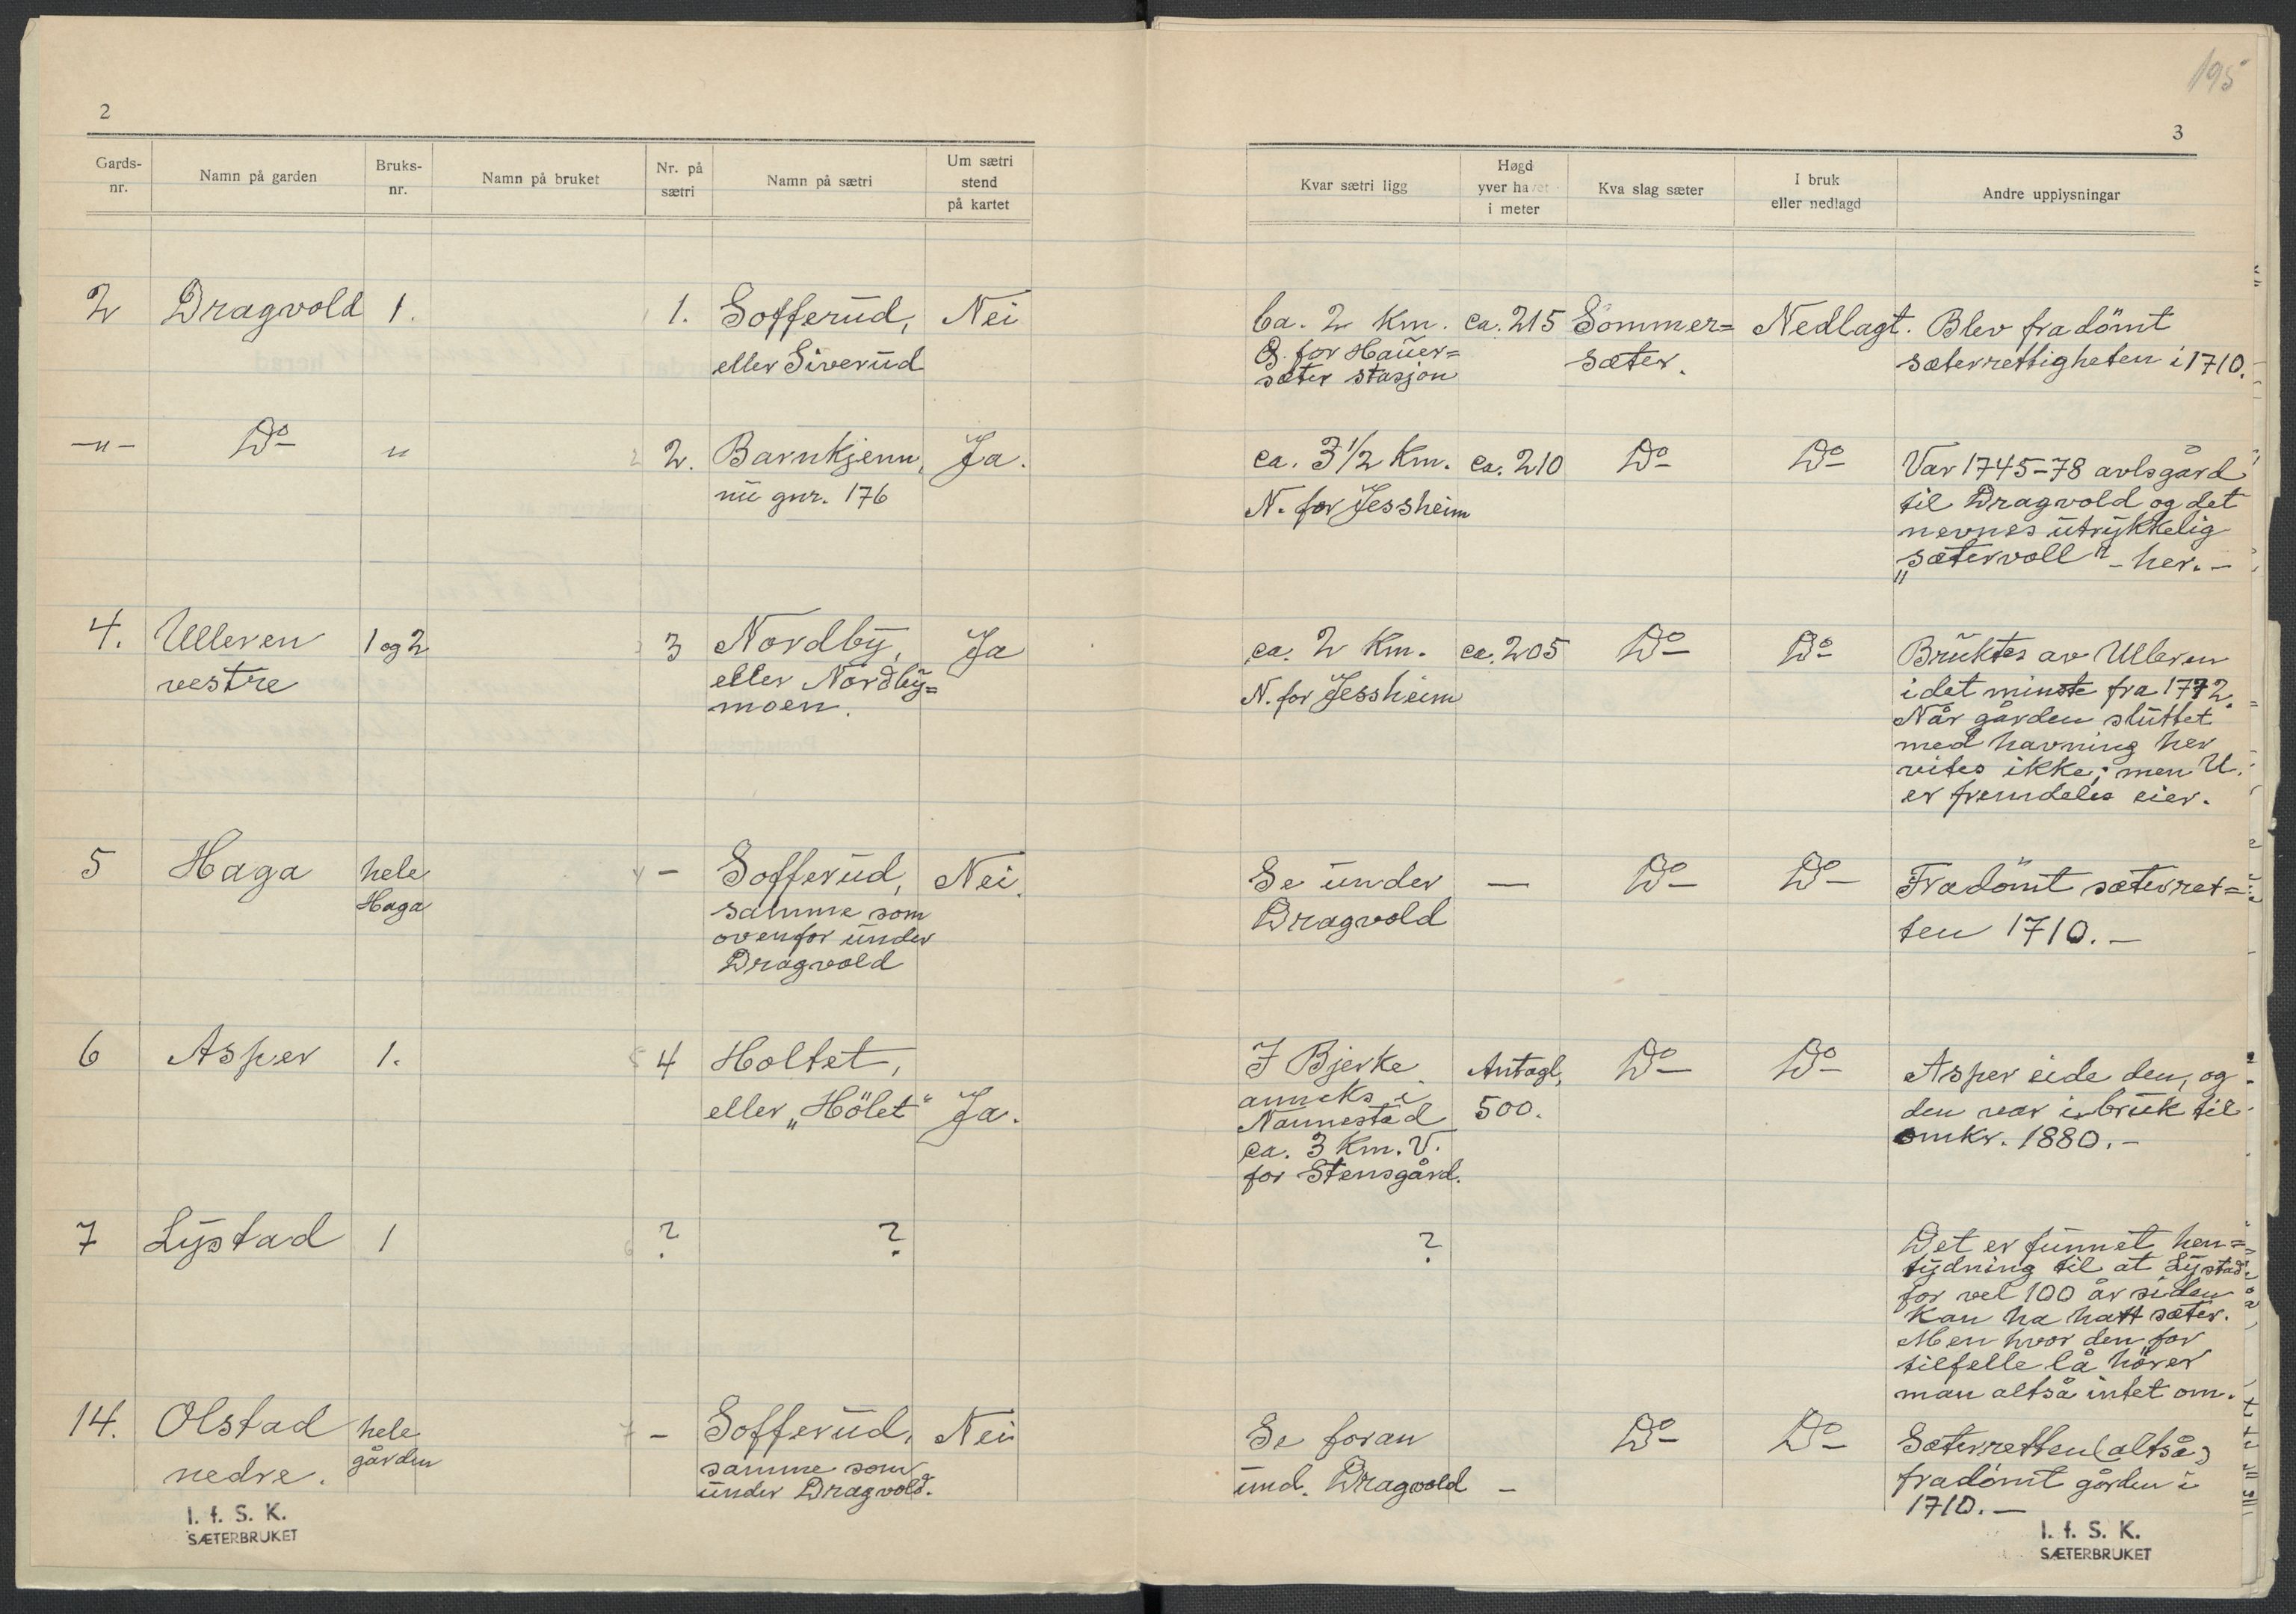 195
2
3
Gards-
nr.
Namn på garden
Bruks-
nr.
Namn på bruket
Nr. på
sætri
Namn på sætri
Um sætri
stend
på kartet
Kvar sætri ligg
Høgd
yver havet
i meter
Kva slag sæter
I bruk
eller nedlagd
Andre upplysningar
2 Dragvold 1. 1. Sofferud, Nei
eller Siverud
Ca. 2 Km.
Ø. for Hauer=
sæter stasjon
ca. 215
Sommer=
sæter.
Nedlagt.
Blev fradömt
sæterrettigheten i 1710.
—„— Do „ 2. Barnkjenn, Ja.
nu gnr. 176
ca. 3 1/2 Km.
N. for Jessheim
ca. 210
Do
Do
Var 1745-78 avlsgård
til Dragvold og det
nevnes utrykkelig
„sætervoll" - her. -
4. Ulleren 1 og 2 3 Nordby, Ja
vestre
eller Nordby=
moen.
ca. 2 Km.
N. for Jessheim
ca. 205
Do
Do
Bruktes av Ulleren
i det minste fra 1772.
Når gården sluttet
med havning her
vites ikke; men U.
er fremdeles eier.
5 Haga hele
Haga
- Sofferud, Nei.
samme som
ovenfor under
Dragvold
Se under
Dragvold
—
Do
Do
Fradömt sæterret=
ten 1710. -
6 Asper 1. 4 Holtet,
eller „Hölet" Ja.
I Bjerke
anneks i
Nannestad
ca. 3 Km. V.
for Stensgård.
Antagl.
500.
Do
Do
Asper eide den, og
den var i bruk til
omkr. 1880. -
7 Lystad 1 ? ?
?
Det er funnet hen=
tydning til at Lystad
for vel 100 år siden
kan ha hatt sæter.
Men hvor den for
tilfelle lå hörer
man altså intet om.
14. Olstad hele
nedre. gården
- Sofferud, Nei
samme som
under Dragvold.
Se foran
und. Dragvold
-
Do
Do
Sæterretten (altså)
fradömt gården i
1710. -
I. f. S. K.
SÆTERBRUKET
I. f. S. K.
SÆTERBRUKET